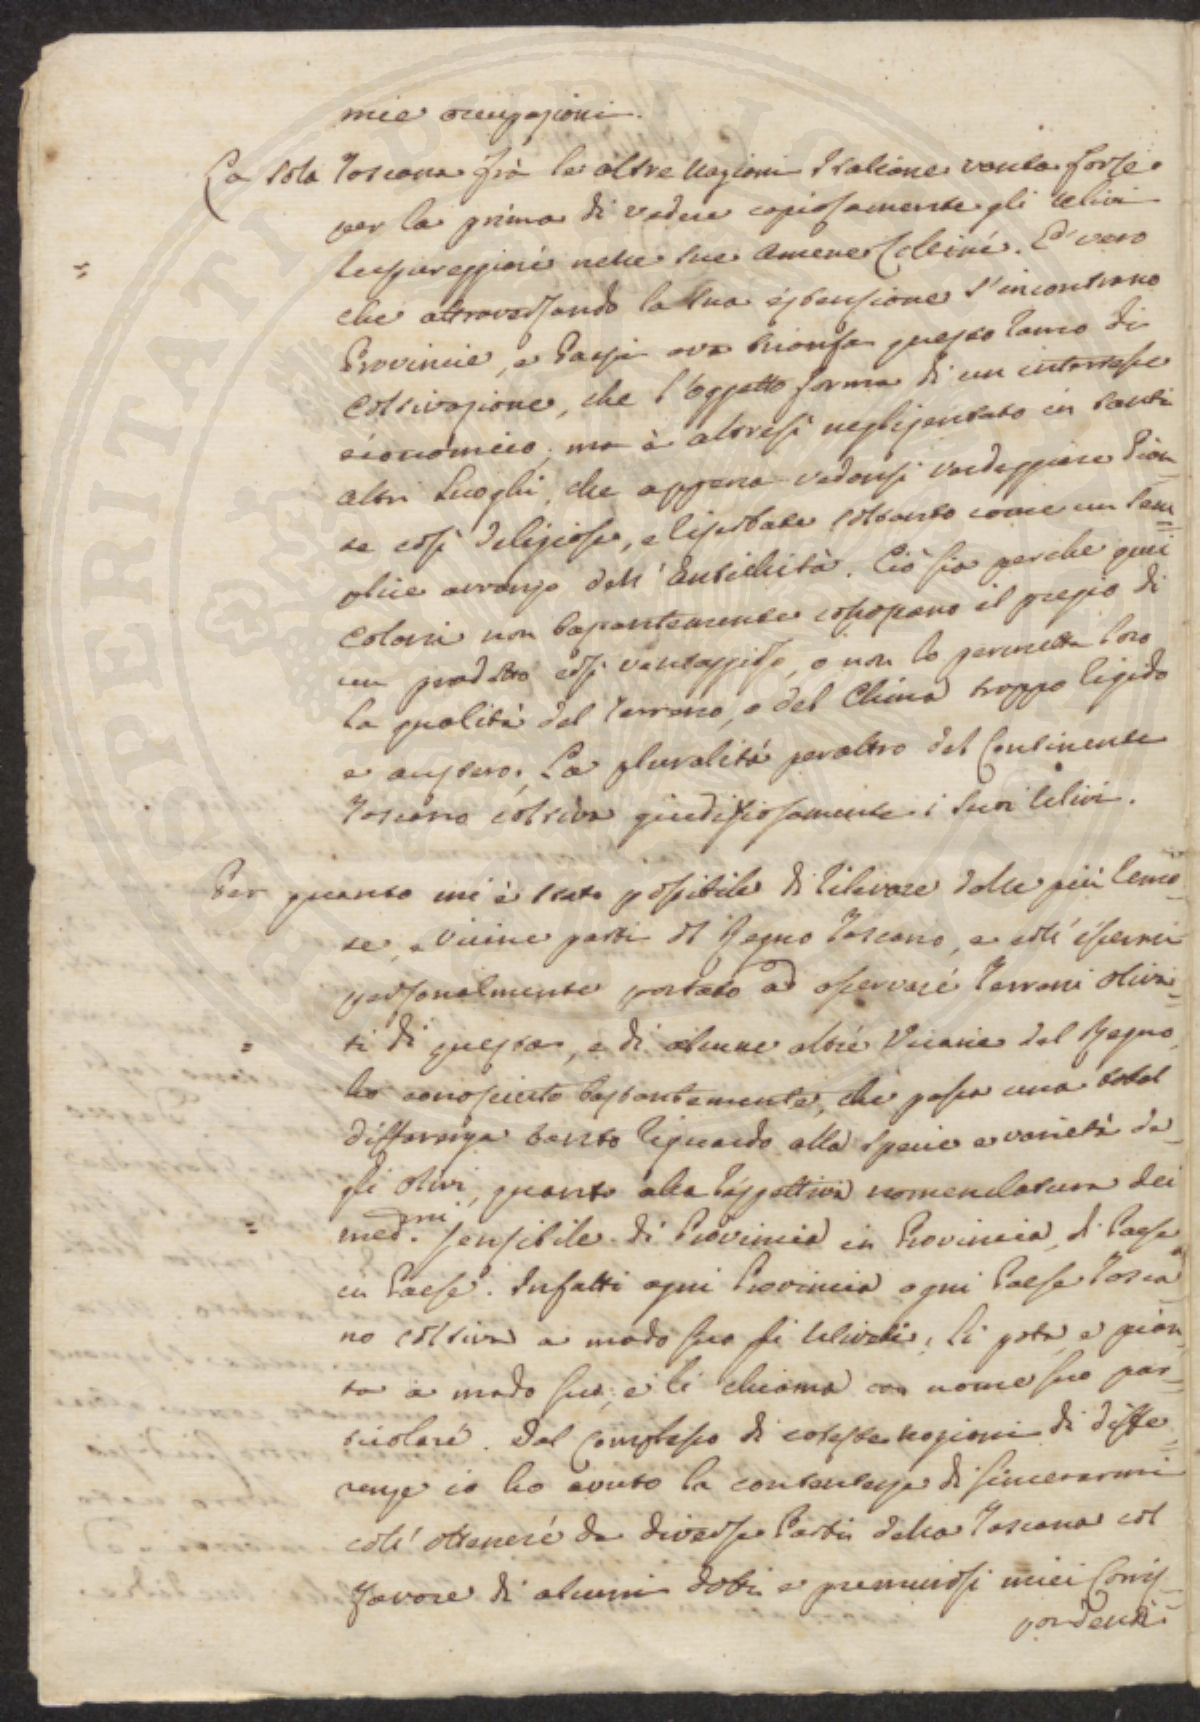 mie occupazioni.
La sola Toscana frà le altre Nazioni Italiane vanta forse
per la prima di vedere copiosamente gli Ulivi
lussureggiare nelle sue amene Colline. E' vero
che attraversando la sua estensione s'incontrano
Provincie, e Paesi ove trionfa questo ramo di
coltivazione, che l'oggetto forma di un interesse
economico; ma è altresì negligentato in tanti
altri Luoghi, che appena vedonsi verdeggiare Pian=
te così deliziose, e rispettate soltanto come un sem=
plice avanzo dell'Antichità. Ciò sia perche quei
Coloni non bastantemente conoscano il pregio di
un prodotto così vantaggioso, o non lo permetta loro
la qualità del Terreno, o del Clima troppo rigido
e austero. La pluralità peraltro del Continente
Toscano coltiva giudiziosamente i suoi Ulivi.
Per quanto mi è stato possibile di rilevare dalle più remo=
te, e vicine parti del Regno Toscano, e coll'essermi
personalmente portato ad osservare Terreni oliva=
ti di questa, e di alcune altre Vicarie del Regno,
ho conosciuto bastantemente, che passa una total
differenza tanto riguardo alla specie e varietà de=
gli olivi, quanto alla rispettiva nomenclatura dei
med.mi sensibile di Provincia in Provincia, di Paese
in Paese. Infatti ogni Provincia ogni Paese Tosca
no coltiva a modo suo gli Uliveti, li pota, e pian=
ta a modo suo, e li chiama con nome suo par=
ticolare. Dal complesso di coteste nozioni di diffe=
renze io ho avuto la contentezza di sincerarmi
coll'ottenere da diverse Parti della Toscana col
favore di alcuni dotti e premurosi miei Corris=
pondenti